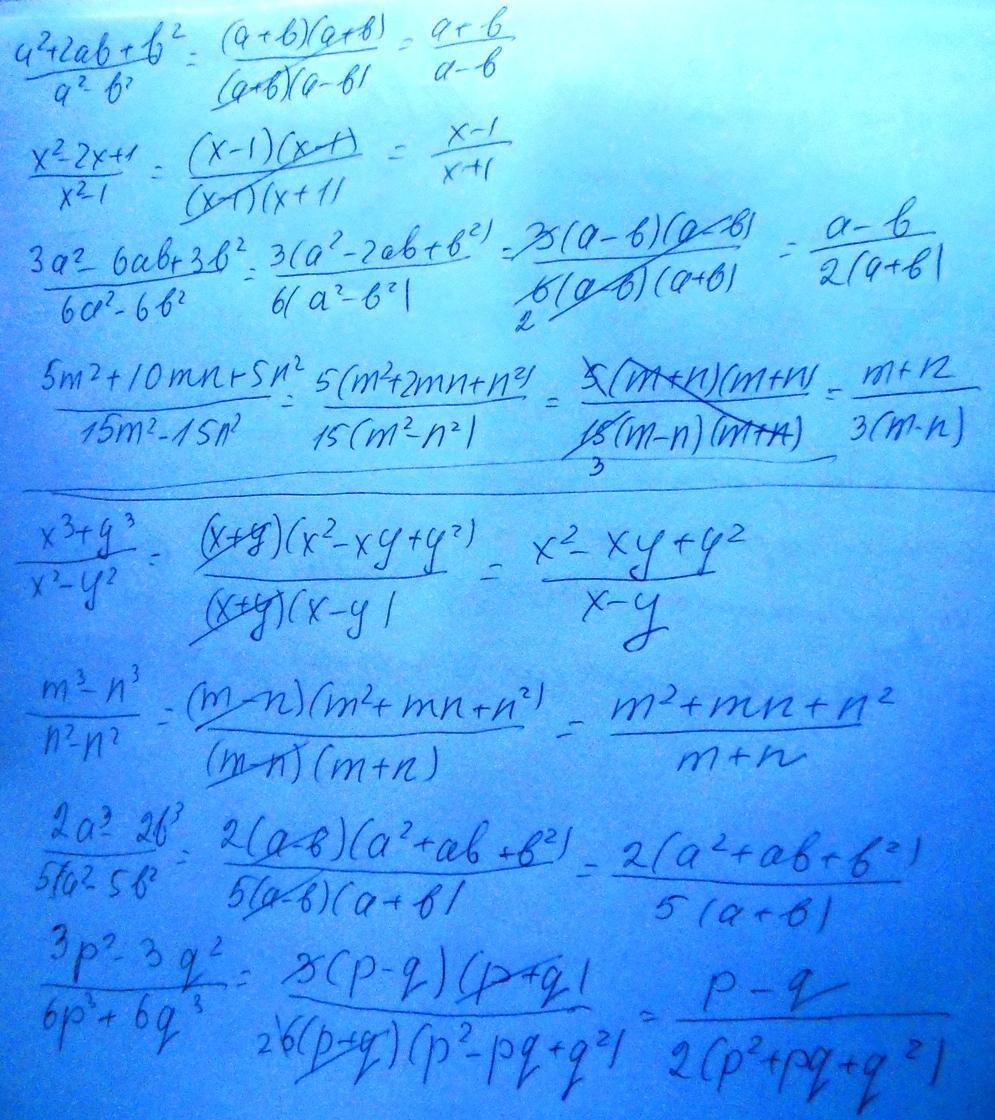 (a²+2ab+b²)/(a²-b²) = ((a+b)(a+b))/((a+b)(a-b)) = (a+b)/(a-b)
(x²-2x+1)/(x²-1) = ((x-1)(x-1))/((x-1)(x+1)) = (x-1)/(x+1)
(3a²-6ab+3b²)/(6a²-6b²) = (3(a²-2ab+b²))/(6(a²-b²)) = (3(a-b)(a-b))/(6(a-b)(a+b)) = (a-b)/(2(a+b))
2
(5m²+10mn+5n²)/(15m²-15n²) = (5(m²+2mn+n²))/(15(m²-n²)) = (5(m+n)(m+n))/(15(m-n)(m+n)) = (m+n)/(3(m-n))
3
(x³+y³)/(x²-y²) = ((x+y)(x²-xy+y²))/((x+y)(x-y)) = (x²-xy+y²)/(x-y)
(m³-n³)/(n²-n²) = ((m-n)(m²+mn+n²))/((m-n)(m+n)) = (m²+mn+n²)/(m+n)
(2a³-2b³)/(5a²-5b²) = (2(a-b)(a²+ab+b²))/(5(a-b)(a+b)) = (2(a²+ab+b²))/(5(a+b))
(3p²-3q²)/(6p³+6q³) = (3(p-q)(p+q))/(6(p+q)(p²-pq+q²)) = (p-q)/(2(p²+pq+q²))
2